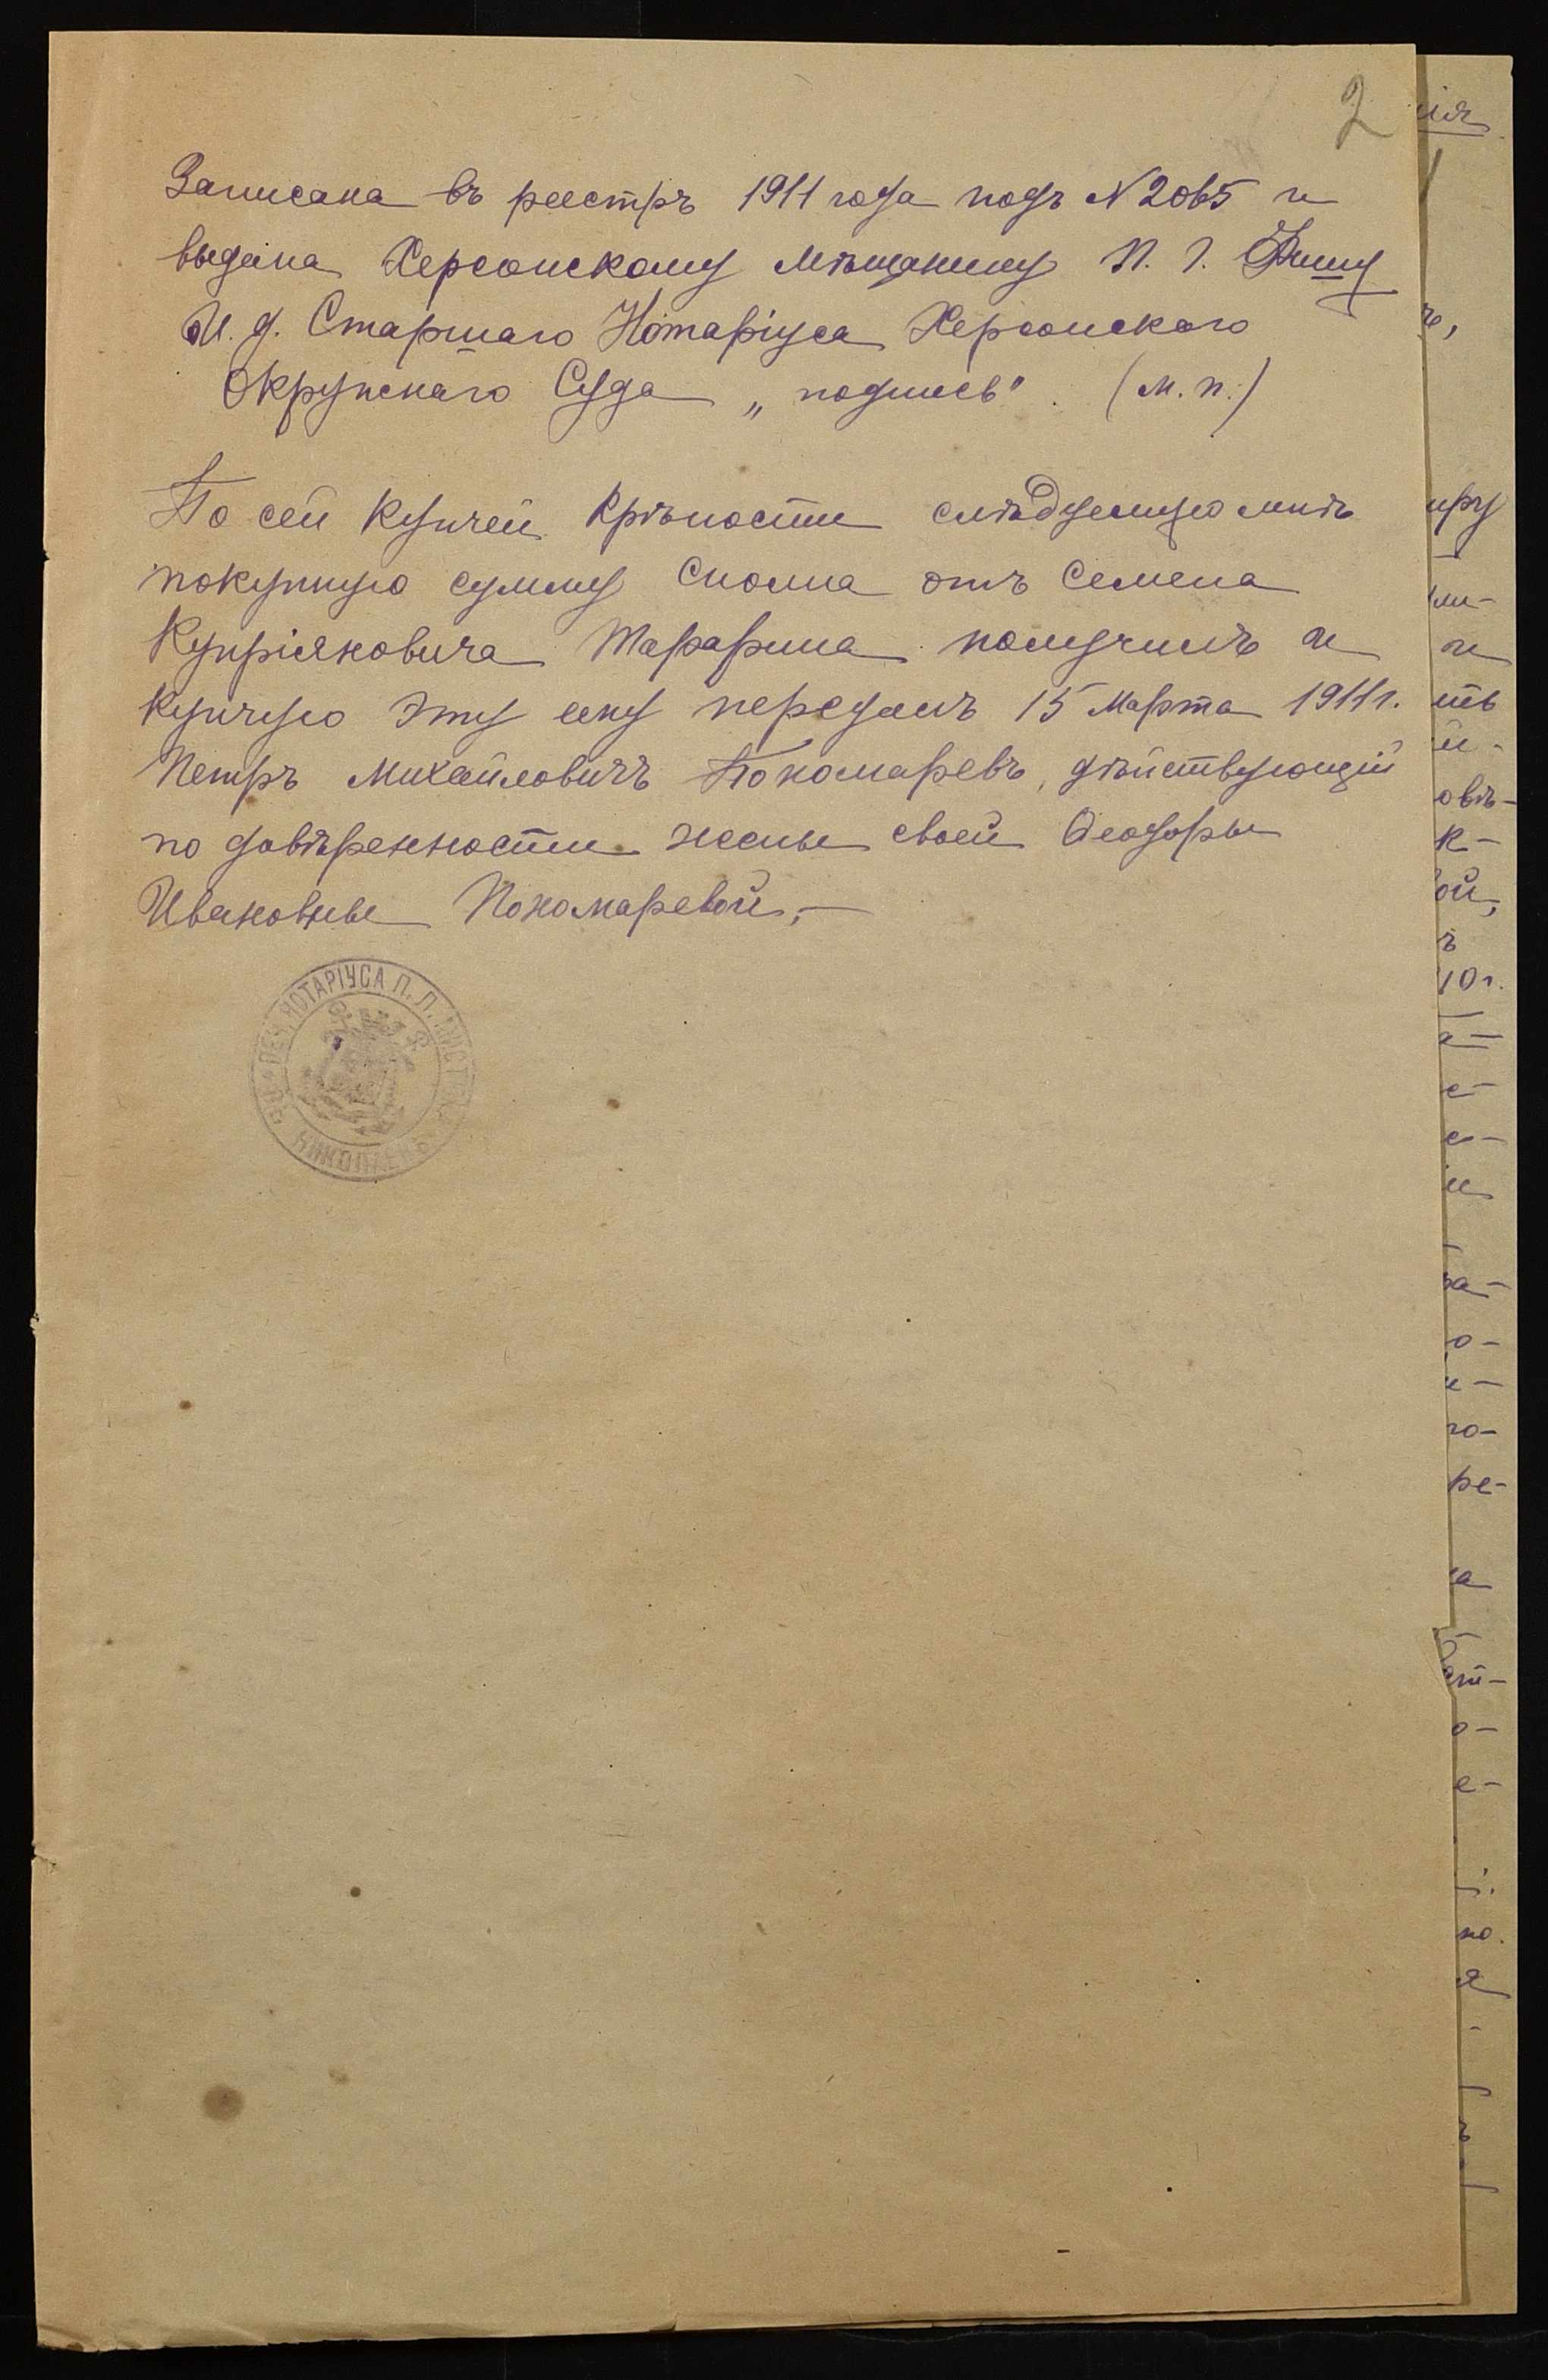 2
Записана въ реестръ 1911 года подъ N 2065 и
выдана Херсонскому мѣщанину П. Г.
И. д. Старшаго Нотаріуса Херсонскаго
Окружнаго Суда „подпись". (м. п.)
По сей купчей крѣпости слѣдуемую мнѣ
покупную сумму сполна отъ Семена
Купріяновича Тарарина получилъ и
купчую эту ему передалъ 15 Марта 1911 г.
Петръ Михайловичъ Пономаревъ, дѣйствующій
по довѣренности жены своей Ѳеодоры
Ивановны Пономаревой.—
ПЕЧ. НОТАРІУСА П. Л.
НИКОЛАЕВ
ія
ъ,
иру
ли-
и
ть
й-
овѣ-
к-
ой,
ъ
10 г.
а-
е-
е-
и
за-
о-
и-
го-
ре-
а
ат-
о-
е-
но.
я
ъ